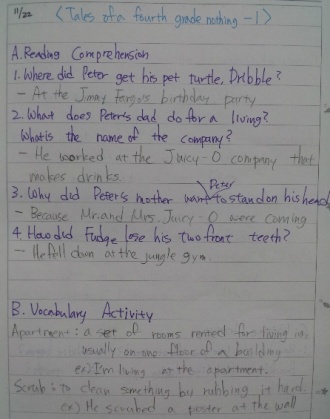 11/22
<Tales of a fourth grade nothing -1>
A. Reading Comprehension
1. Where did Peter get his pet turtle, Dribble?
- At the Jimmy Fargo's birthday party
2. What does Peter's dad do for a living?
What is the name of the company?
- He worked at the Juicy-O company that
makes drinks.
Peter
3. Why did Peter's mother want to stand on his head
- Because Mr. and Mrs. Juicy-O were coming
4. How did Fudge lose his two front teeth?
- He fell down at the jungle gym
B. Vocabulary Activity
Apartment : a set of rooms rented for living in,
usually on one floor of a building
ex) I'm living at the apartment.
Scrub : to clean something by rubbing it hard.
ex) He scrubed a poster at the wall